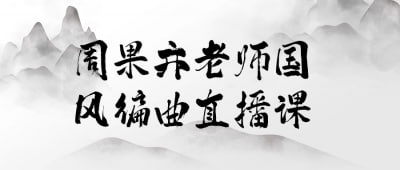 周果亦老师国
风编曲直播课